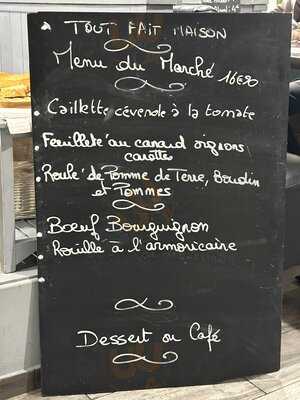 TOUT FAIT MAISON
Menu du Marché 16€90
Caillette cévenole à la tomate
Feuilleté au canard oignons
carotte
Roulé de Pomme de Terre, Boudin
et Pommes
Bœuf Bourguignon
Rouille à l'armoricaine
Dessert ou Café